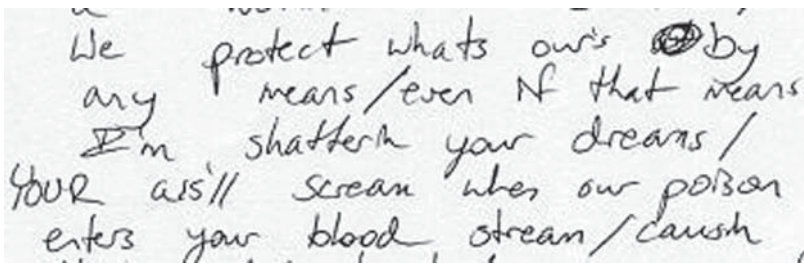 We protect whats our's by
any means/even if that means
I'm shatterin your dreams/
YOUR ass'll scream when our poison
enters your blood stream/causin